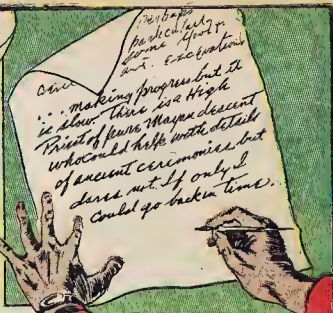 perhaps
particularly
some
art. excavations
... making progress but it
is slow. There is a High
Priest of pure Mayan descent
who could help with details
of ancient ceremonies but
dares not. If only I
could go back in time.